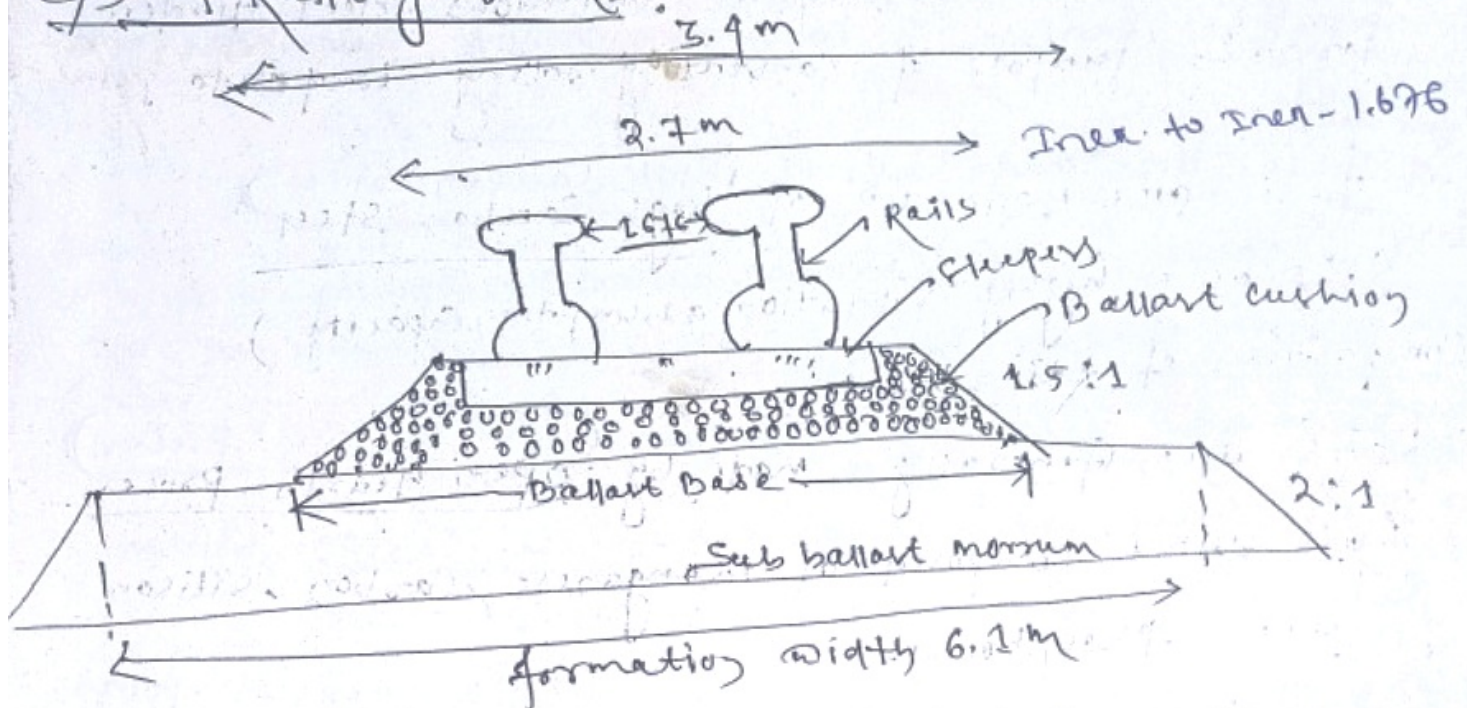 3.4 m
2.7 m
Iner to Iner - 1.676
1676
Rails
Sleepers
Ballast cushion
1.5 : 1
Ballast Base
2 : 1
Sub ballast morrum
formation width 6.1 m